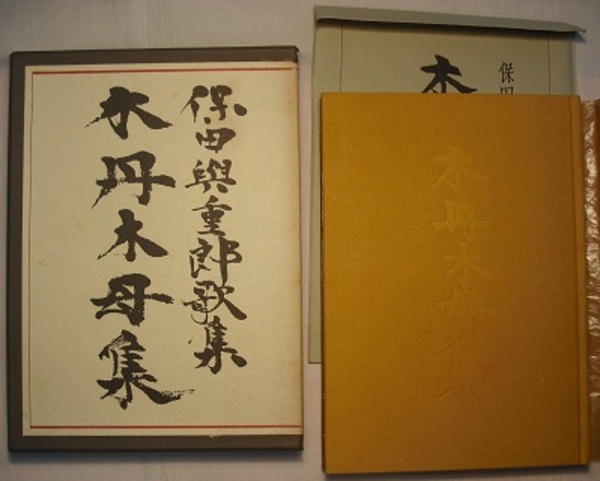 保田與重郎歌集
木丹木母集
保田
木
木丹木母集